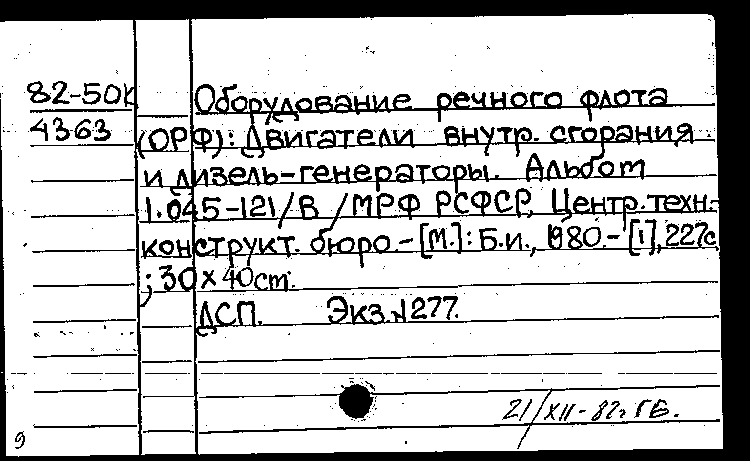 82-50к Оборудование речного флота
4363 (ОРФ): Двигатели внутр. сгорания
и дизель-генераторы. Альбом
1.045-121/В /МРФ РСФСР, Центр.техн.-
конструкт. бюро.-[М.]: Б.и., 1980.-[1], 227с
; 30×40cm.
ДСП. Экз.№277.
21/XII-82г ГБ.
9